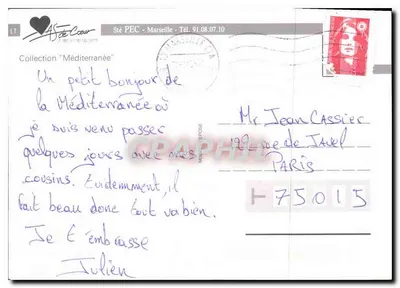 L1
As de Coeur
Sté PEC - Marseille - Tél. 91 08.07.10
Collection "Méditerranée"
Un petit bonjour de
la Méditerranée où
je suis venu passer
quelques jours avec mes
cousins. Evidemment, il
fait beau donc tout va bien.
Je t'embrasse
Julien
Mr Jean CASSIER
rue de JAVEL
PARIS
75015